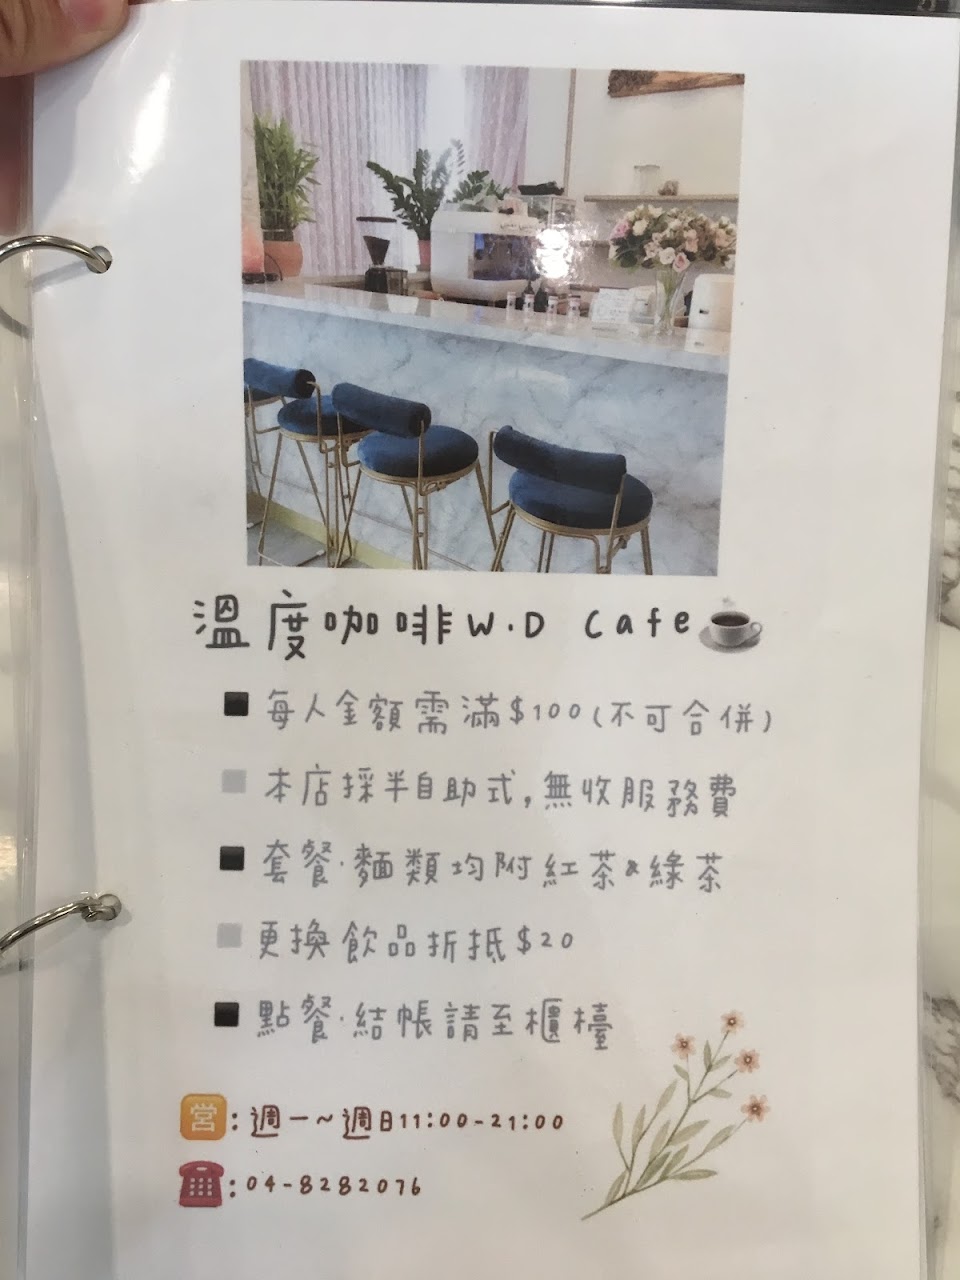 溫度咖啡W.D Cafe
每人金額需滿$100(不可合併)
本店採半自助式,無收服務費
套餐.麵類均附紅茶&綠茶
更換飲品折抵$20
點餐.結帳請至櫃檯
営:週一~週日11:00-21:00
:04-8282076